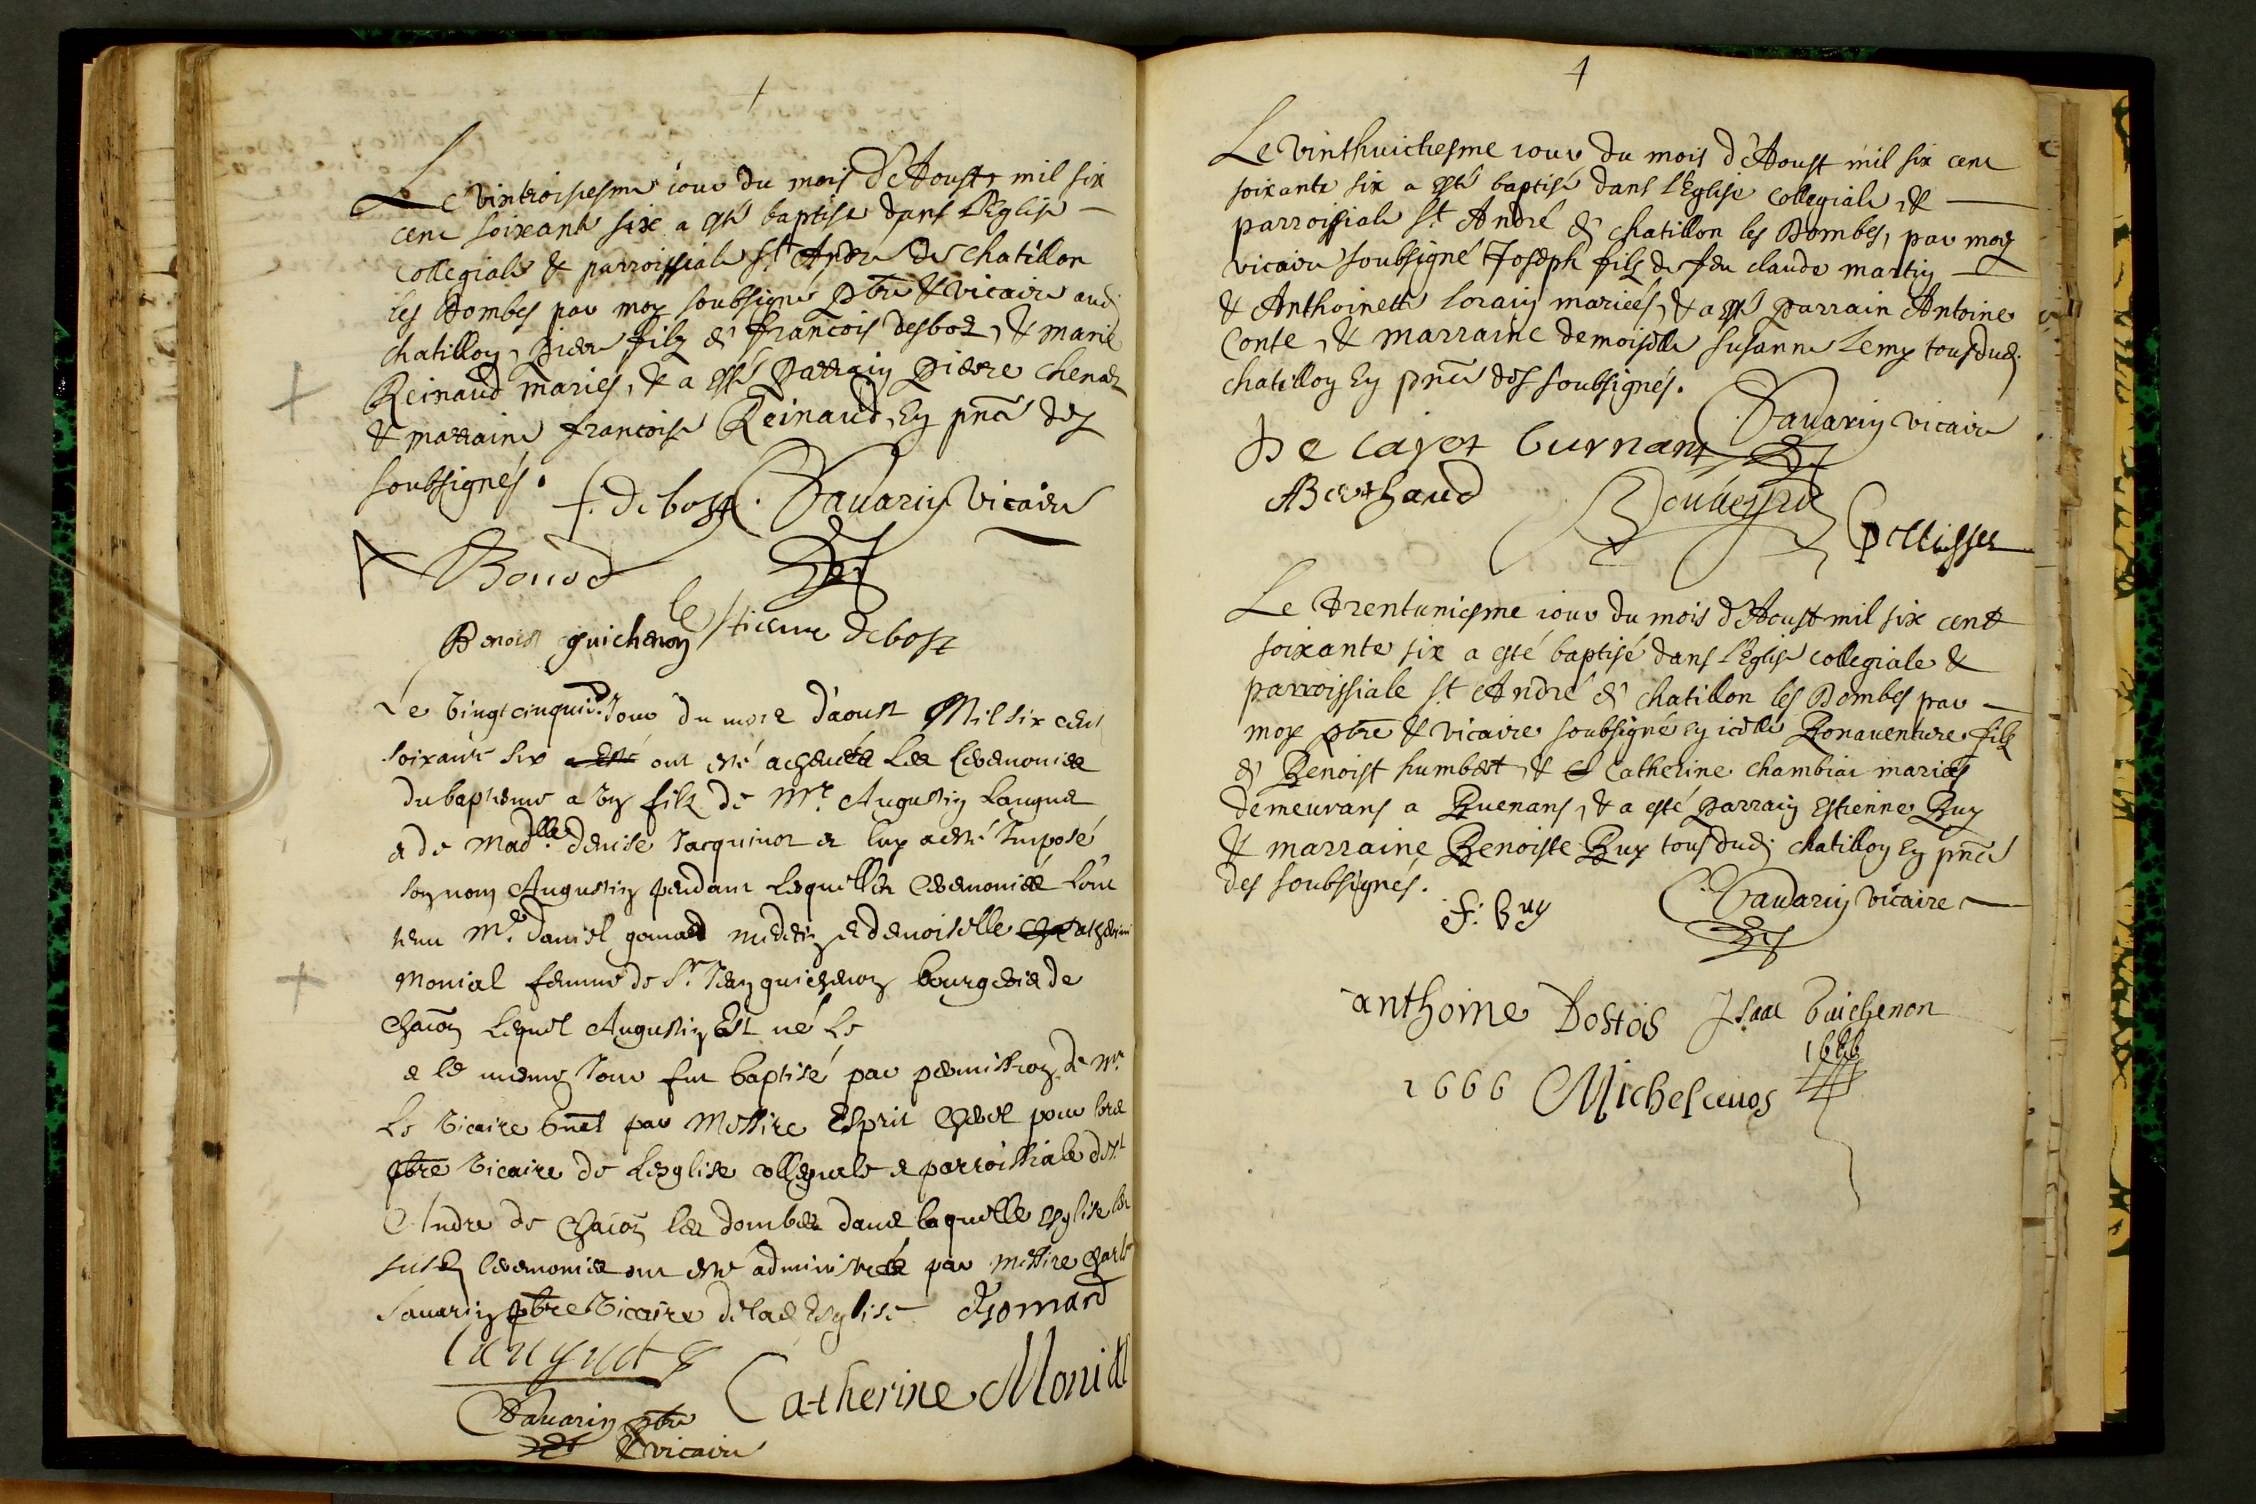 Le vintroisiesme iour du mois d'Aoust mil six
cent soixante six a esté baptisé dans l'Eglise
Collegiale & parroissiale St André de Chatillon
les Dombes par moy soubsigné pbre & vicaire aud
chatillon, Pierre filz de francois desbost, & marie
Reinaud mariés, & a esté parrain Pierre
& marraine francoise Reinaud, En pnce des
soubsignés.
f. debost. C. Savarin vicaire
Bouod
Benoist guichenon Estienne debost
Le vingt cinqui. Jour du mois d'aoust Mil six cent
soixante six a Esté ont esté achevées Les Ceremonies
du baptesme a un filz de Mre Augustin Langue
& de Madlle denise Jacquinot & luy a esté Imposé
son nom Augustin pendant lesquelles Ceremonies l'ont
tenu Mre daniel gomard medecin & demoiselle Catherine
Monial femme de Sr Jean guichenon bourgeois de
Chaōn Lequel Augustin Est né Le
& le mesme Jour fut baptisé par permission de Mr
Le vicaire par Messire Esprit pour lors
pbre vicaire de Lesglise collegiale & parroissiale de St
Andre de Chaōn les dombes dans laquelle Esglise les
susd Ceremonies ont esté administrées par Messire Charles
Savarin pbre vicaire de lad Esglise Gomard
Catherine Monial
C Savarin pbre
& vicaire
Le vinthuichesme iour du mois d'Aoust mil six cent
soixante six a esté baptisé dans l'Eglise Collegiale &
parroissiale St André de chatillon les Dombes, par moy
vicaire soubsigné Joseph filz de feu claude martin
& Anthoinette lorain mariés, & a esté parrain Antoine
Conte, & marraine demoiselle Susanne tous dud.
chatillon En pnce des soubsignés.
C. Savarin vicaire
Berthaud
Pellissier
Le Trentuniesme iour du mois d'Aoust mil six cent
soixante six a esté baptisé dans l'Eglise collegiale &
parroissiale St André de chatillon les Dombes par
moy pbre & vicaire soubsigné en icelle Bonaventure filz
de Benoist humbert & Catherine chambiar mariés
demeurans a Buenans, & a esté parrain Estienne Buy
& marraine Benoiste Buy tous dud. chatillon En pnce
des soubsignés.
f. Buy C. Savarin vicaire
anthoine Dostois Isaac Guichenon
1666
1666